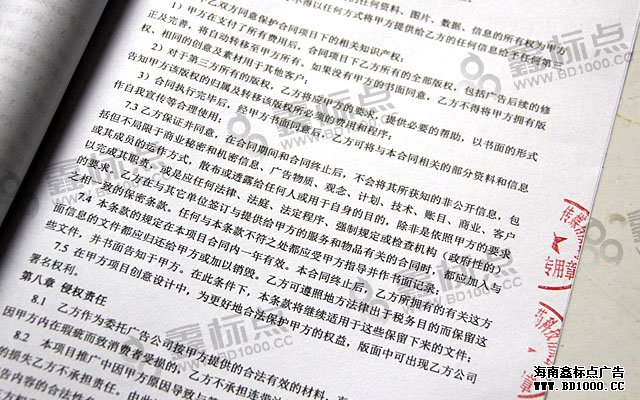 甲乙双方同意保护合同项下的相关知识产权；
1）甲方在支付了所有费用后，合同项下乙方所有的全部版权，包括广告后续的修
正及完善，将自动转移至甲方所有，如果没有甲方的书面同意，乙方不得将甲方拥有版
权、相同的创意及素材用于其他客户；
2）对于第三方所有的版权，乙方将应甲方的要求，提供必要的帮助，以书面的形式
告知甲方该版权的归属及转移该版权所必要的费用和程序；
3）合同执行完毕后，经甲方书面同意后，乙方可将与本合同相关的部分资料和信息
作自我宣传等合理使用；
7.3 乙方保证并同意，在合同期间和合同终止后，不会将其所获知的非公开信息，包
括但不局限于商业秘密和机密信息、广告物质、观念、计划、技术、账目、商业、客户
或其成员的运作方式，散布或透露给任何人或用于自身的目的，除非是依照甲方的要求
以完成其职责，或是应任何法律、法庭、法定程序、强制规定或检查机构（政府性的）
的要求。乙方在与其它单位签订与提供给甲方的服务和物品有关的合同时，都应加入与
之相一致的保密条款。任何与本条款不符之处都应受甲方指导并作书面记录；
7.4 本条款的规定在本项目合同内一年有效。本合同终止后，乙方所拥有的有关这方
面信息的文件都应归还给甲方或加以销毁。乙方可遵照地方法律出于税务目的而保留这
些文件，并书面告知于甲方。在此条件下，本条款将继续适用于这些保留下来的文件；
7.5 在甲方项目创意设计中，为更好地合法保护甲方的权益，版面中可出现乙方公司
署名权利。
第八章 侵权责任
8.1 乙方作为委托广告公司按甲方提供的合法有效的材料，
因甲方内在瑕疵而致消费者受损的，乙方不承担连带
8.2 本项目推广中因甲方原因导致与
的损失乙方不承担责任。由此
告内容的合法性
专用章
鑫标点
WWW.BD1000.CC
海南鑫标点广告
WWW.BD1000.CC